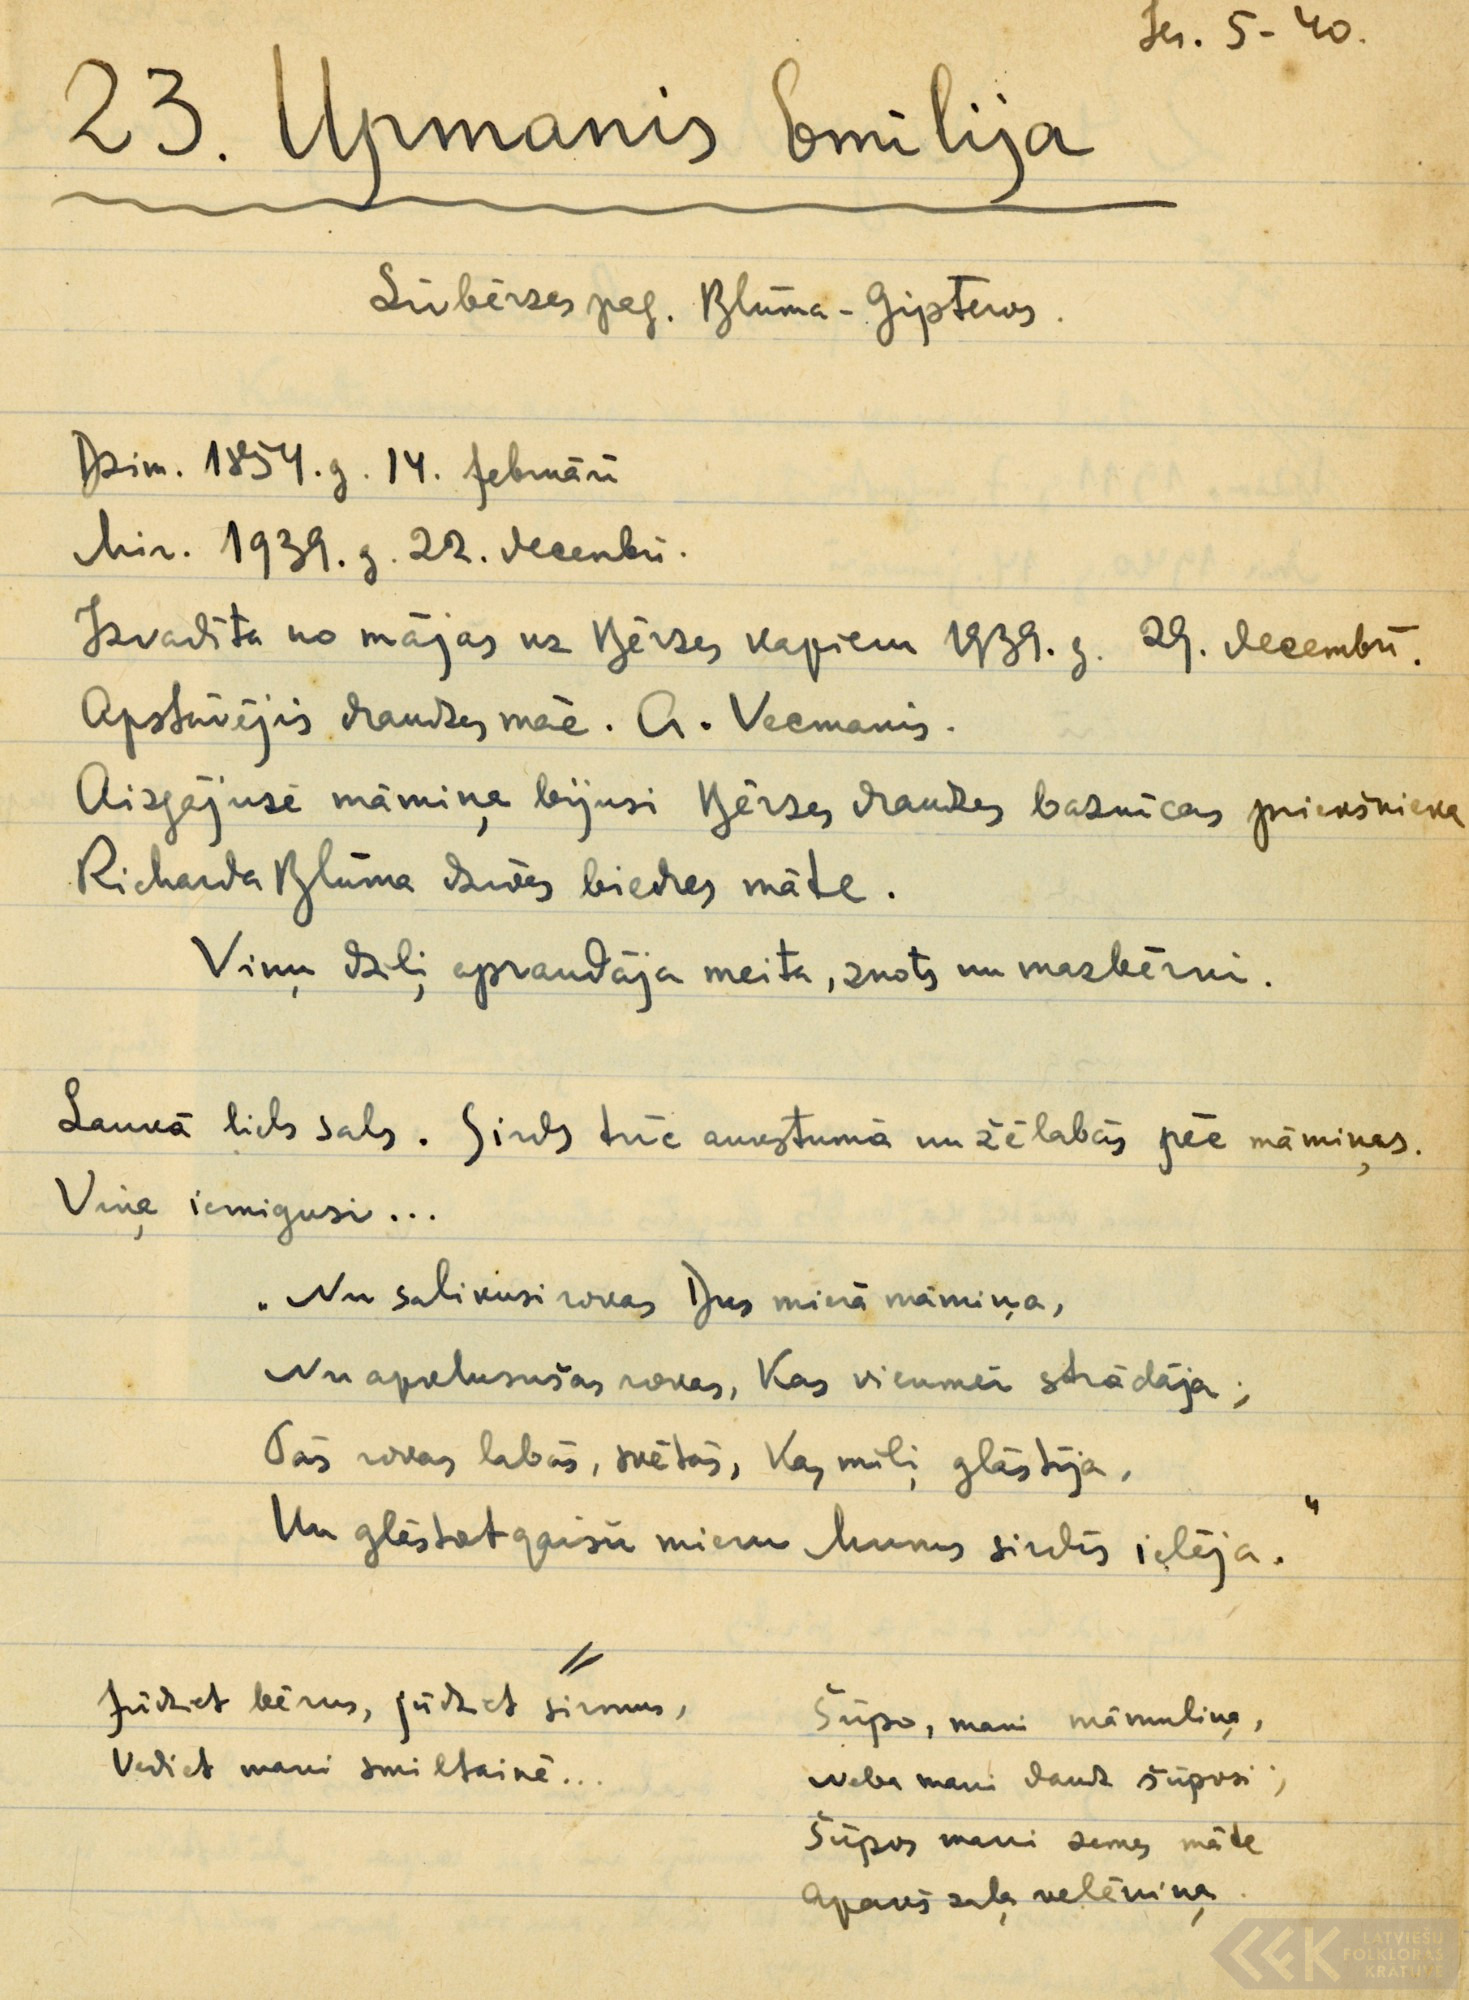 5-40.
23. Upmanis Emīlija
Līvbērzes pag. Blūma - Ģipteros.
Dzim. 1854. g. 14. februārī
Mir. 1939. g. 22. decembrī.
Izvadīta no mājas uz Bērzes kapiem 1939. g. 29. decembrī.
Apstāvējis draudzes māc. A. Vecmanis.
Aizgājusē māmiņa bijusi Bērzes draudzes baznīcas priekšnieka
Richarda Blūma dzīves biedres māte.
Viņu dziļi apraudāja meita, znots un mazbērni.
Laukā liels sals. Sirds trīc aukstumā un žēlabās pēc māmiņas.
Viņa iemigusi...
„Nu salikusi rokas Dus mierā māmiņa,
Nu apklusušas rokas, Kas vienmēr strādāja;
Tās rokas labās, svētās, Kas mīļi glāstīja,
Un glāstot gaišu mieru Mums sirdīs ielēja."
Jūdziet bērus, jūdziet sirmus,
Vediet mani smiltainē...
Šūpo, mani māmuliņa,
Neba mani daudz šūposi;
Šūpos mani zemes māte
Apakš zaļa velēniņa.
LATVIEŠU
FOLKLORAS
KRĀTUVE